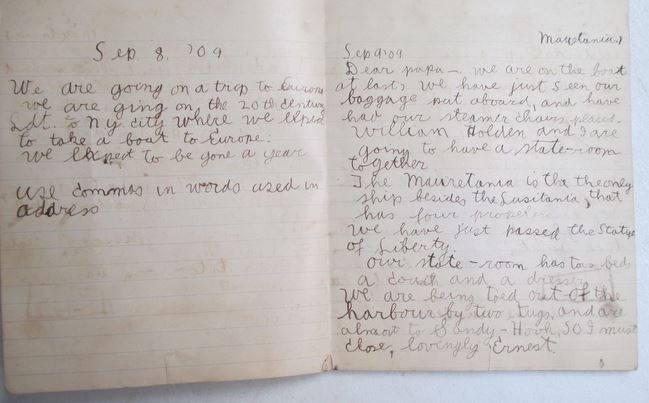 Sep. 8. '09
We are going on a trip to Europe
we are ging on the 20th century
Ldt. to N y city where we expect
to take a boat to Europe.
we Expect to be gone a year
use commas in words used in
address
Mauretania
Sep 9 '09
Dear papa — we are on the boat
at last, we have just seen our
baggage put aboard, and have
had our steamer chairs placed.
William Holden and I are
going to have a state-room
together
The Mauretania is the the only
ship besides the Lusitania, that
has four
We have just passed the Statue
of Liberty.
our state-room has two beds
a couch and a dresser
We are being toed out of the
harbour by two tugs, and are
almost to Sandy-Hook, SO I must
close, lovingly Ernest.